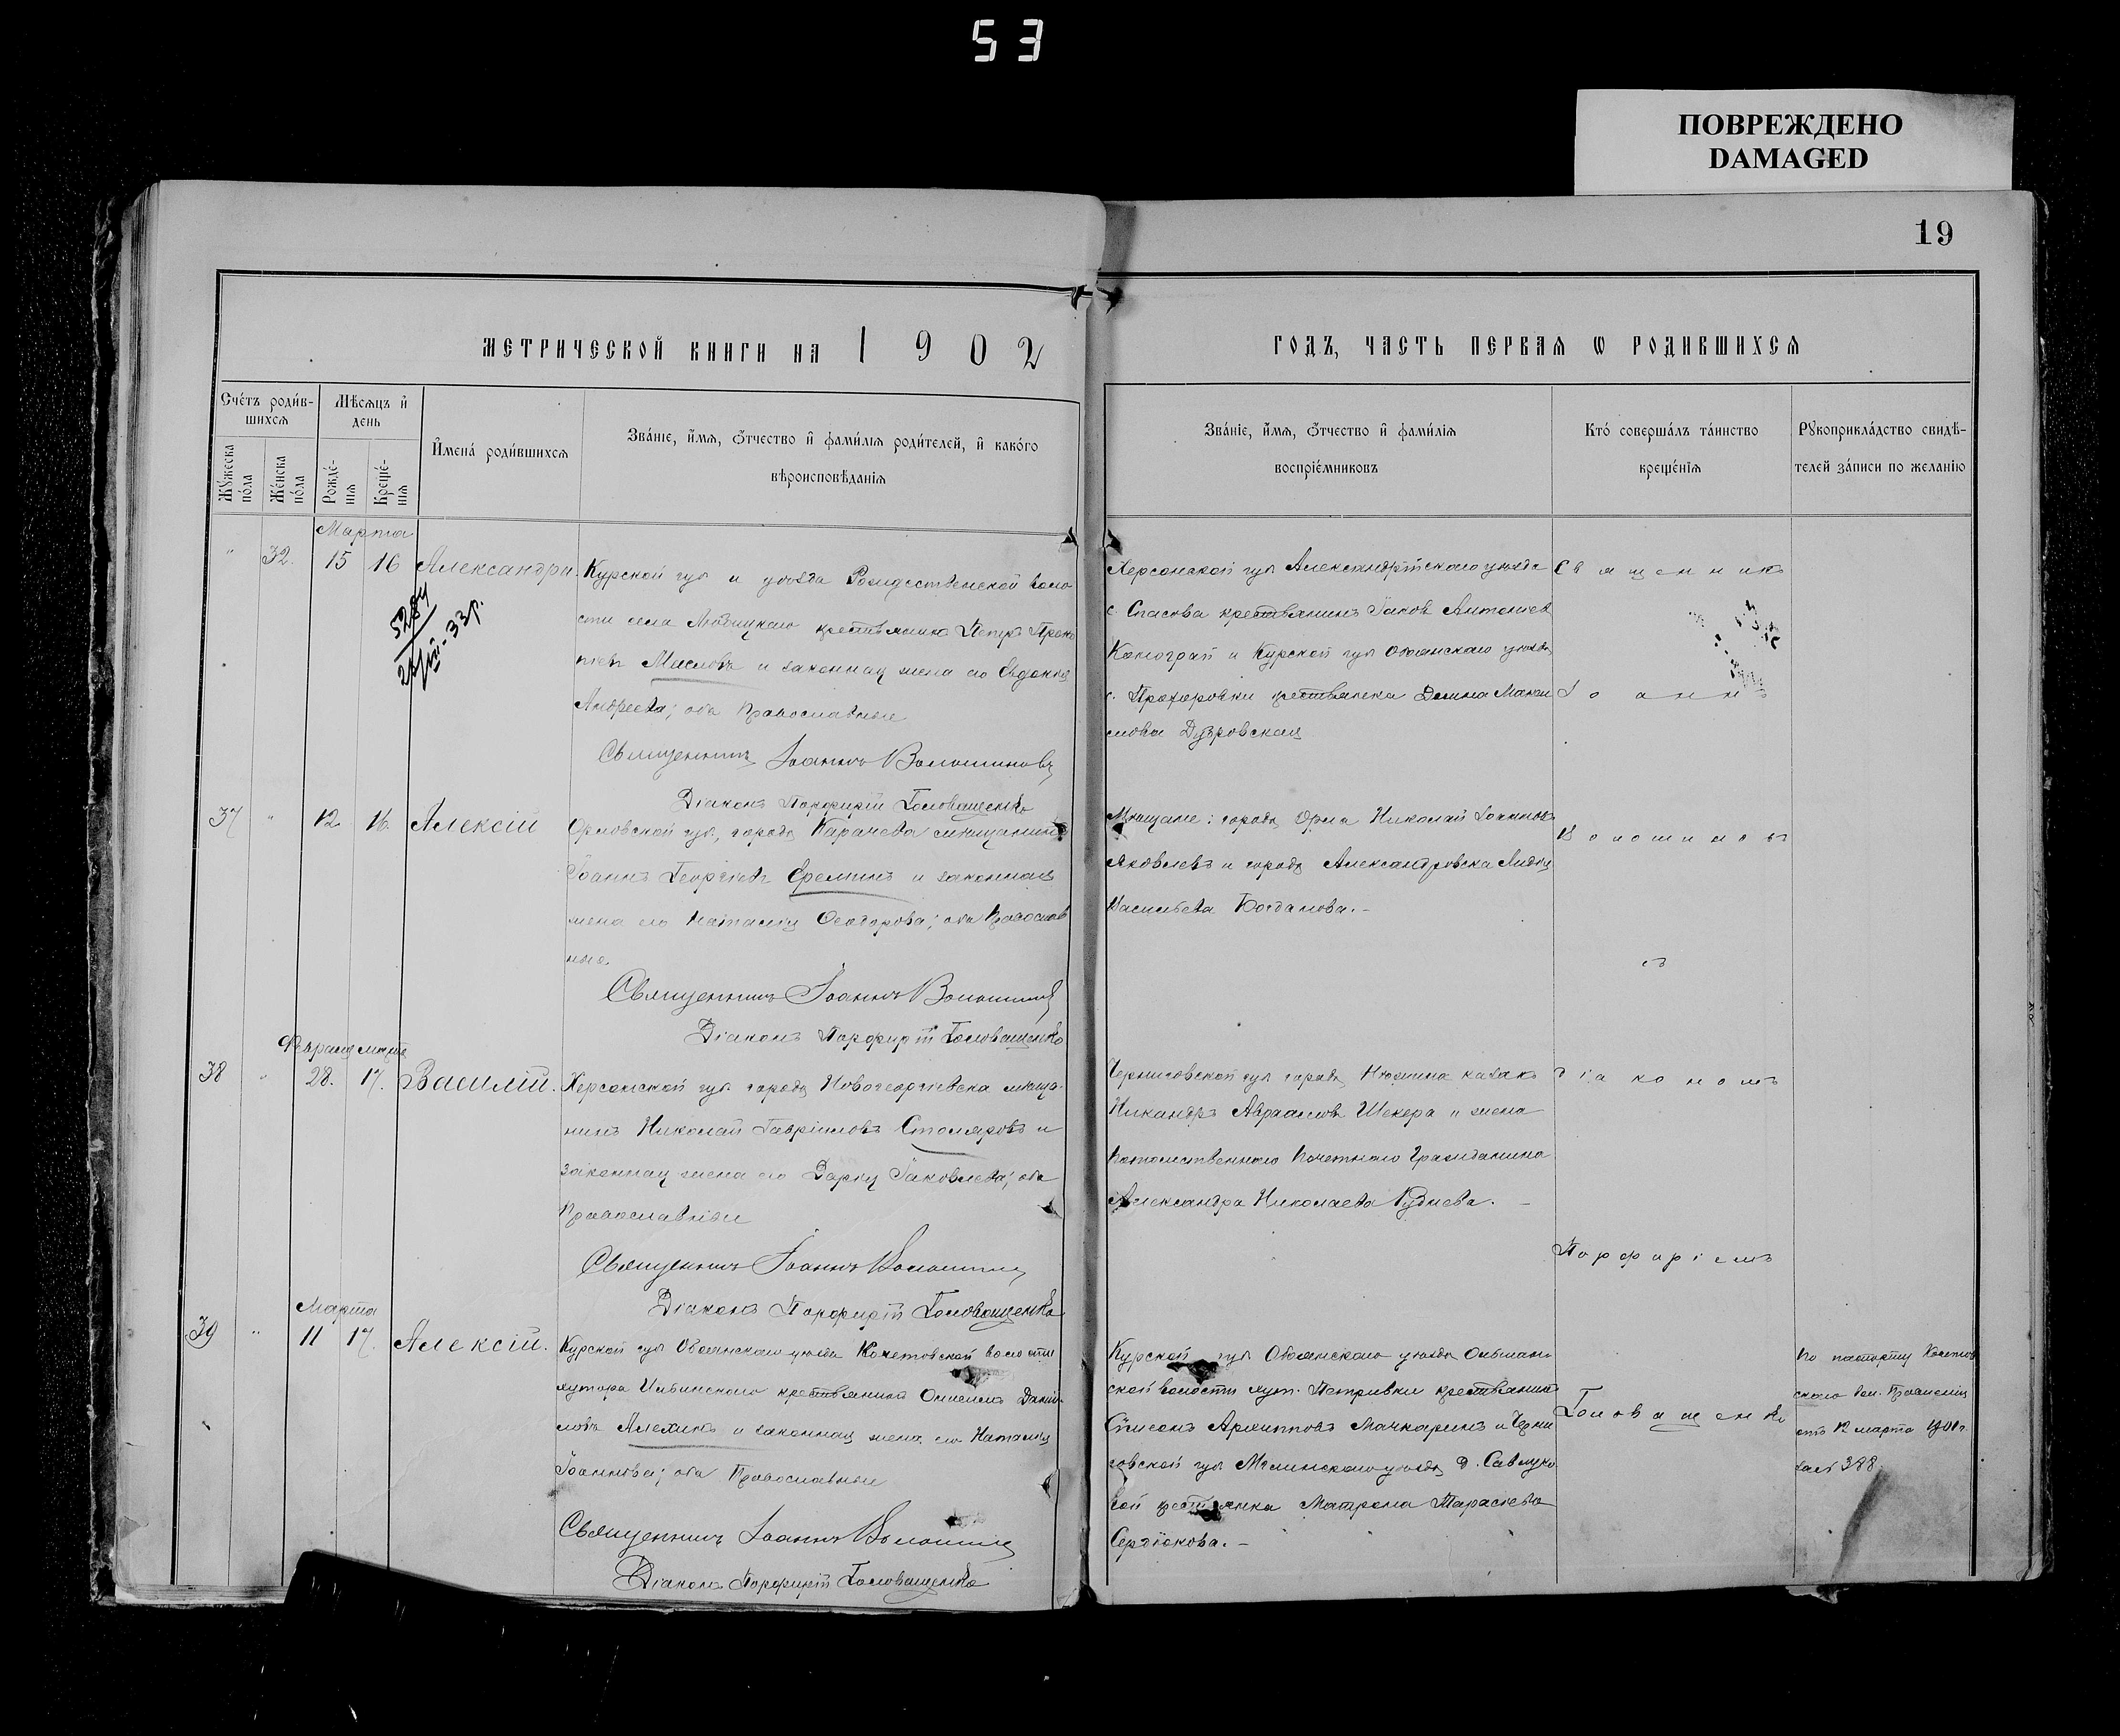 53
ПОВРЕЖДЕНО
DAMAGED
19
МЕТРИЧЕСКОЙ КНИГИ НА 1902
ГОДЪ, ЧАСТЬ ПЕРВАѦ Ѡ РОДИВШИХСѦ
Сче́тъ роди́в-
шихсѧ
Мѣсѧцъ и҆
день
Мꙋ́жеска
по́ла
Же́нска
по́ла
Рожде́-
нїѧ
Креще́-
нїѧ
И҆мена̀ роди́вшихсѧ
Зва́нїе, и҆́мѧ, ѻ҆́тчество и҆ фами́лїѧ роди́телей, и҆ како́гѡ
вѣроисповѣ́данїѧ
Зва́нїе, и҆́мѧ, ѻ҆́тчество и҆ фами́лїѧ
воспрїе́мниковъ
Кто̀ соверша́лъ та́инство
креще́нїѧ
Рꙋкоприкла́дство свидѣ́-
телей за́писи по жела́нїю
Марта
" 32. 15 16 Александра.
5284
Курской губ и уѣзда Рождественской воло
сти села Любицкаго крестьянинъ Петръ
Масловъ и законная жена его Евдокия
Андреева; оба Православные
Священникъ Іоаннъ Волошиновъ
Діаконъ Порфирій Головащенко
Херсонской губ Александрійскаго уѣзда
с. Спасова крестьянинъ Іаковъ Антониев
и Курской губ Обоянскаго уѣзда
с. Прохоровки крестьянка
Священникъ
Іоаннъ
37 " 12 16. Алексій
Орловской губ, города Карачева мѣщанинъ
Іоаннъ Георгіевъ Ереминъ и законная
жена его Наталія Ѳеодорова; оба Православ
ные.
Священникъ Іоаннъ Волошиновъ
Діаконъ Порфирій Головащенко
Мѣщане: города Орла Николай Іоанновъ
Яковлевъ и города Александровска Лидія
Васильева Богданова. –
Волошиновъ
съ
Февраля марта
38 " 28. 17. Василій.
Херсонской губ города Новогеоргіевска мѣща-
нинъ Николай Гавріиловъ Столяровъ и
законная жена его Дарія Іаковлева; оба
Православные
Священникъ Іоаннъ Волошиновъ
Діаконъ Порфирій Головащенко
Черниговской губ города Нѣжина казакъ
Никандръ Авраамовъ Шекера и жена
потомственнаго почетнаго гражданина
Александра Николаева –
діакономъ
Порфиріемъ
Марта
39 " 11 17. Алексій.
Курской губ Обоянскаго уѣзда Кочетовской волости
хутора Ильинскаго крестьянинъ Даніи-
ловъ Алехинъ и законная жена его Наталія
Іоаннова; оба Православные
Священникъ Іоаннъ Волошиновъ
Діаконъ Порфирій Головащенко
Курской губ Обоянскаго уѣзда Ольшан-
ской волости хут. Петривки крестьянинъ
Сѵмеонъ Архипповъ и Черни
говской губ Мглинскаго уѣзда д.
крестьянка Матрона Тарасіева
Сердюкова. –
Головащенко
По паспорту Кочетов
скаго вол. Правленія
отъ 12 марта 1901 г.
за № 388.